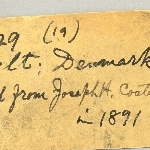 29 (19)
lt; Denmark
d from Joseph H. Coate
in 1891